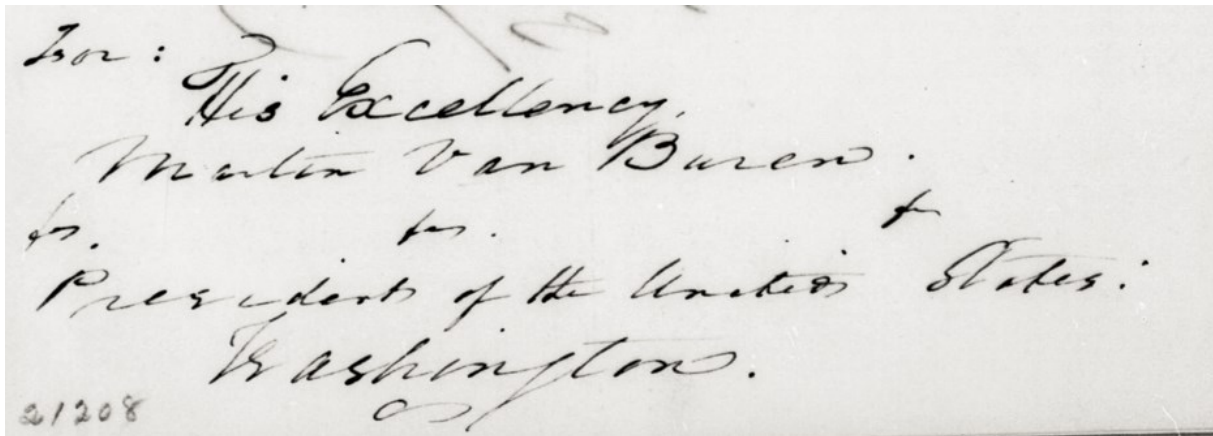 For:
His Excellency,
Martin Van Buren.
&c. &c. &c
President of the United States:
Washington.
21208